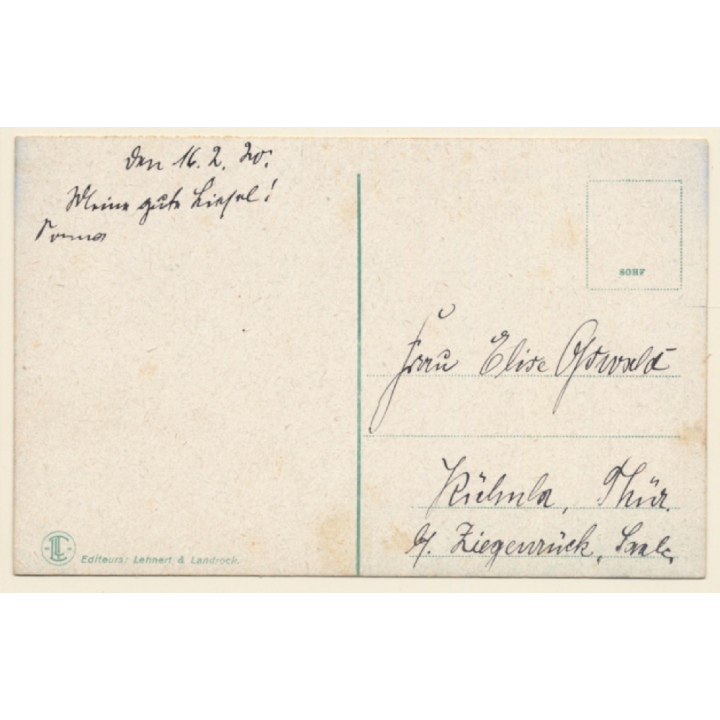 den 16. 2. 20.
Meine gute Liesel!
SOHF
Frau Elise Oßwald
Külmla, Thür.
b/. Ziegenrück, Saale.
LL
Editeurs: Lehnert & Landrock.